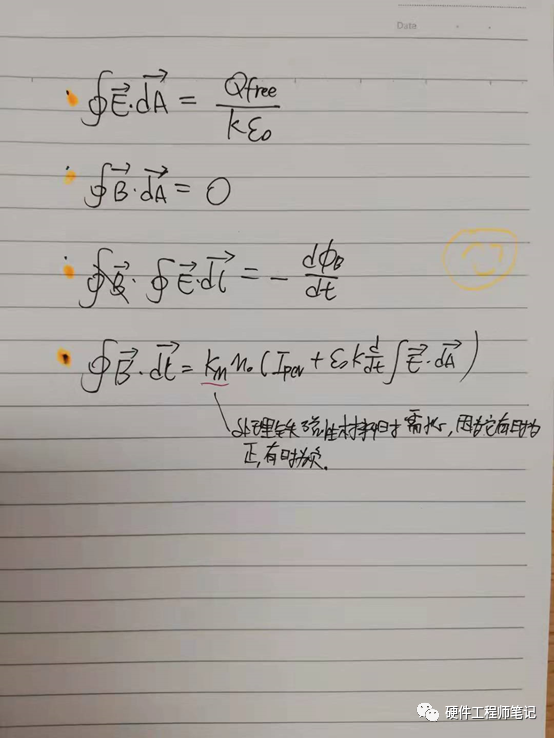 Date
∮E⃗·dA⃗ = Qfree / kε₀
∮B⃗·dA⃗ = 0
∮E⃗·dl⃗ = - dϕB / dt
∮B⃗·dl⃗ = kₘμ₀(Ipen + ε₀k d/dt ∫E⃗·dA⃗)
处理铁磁性材料时才需要kₘ,因为它有时为
正,有时为负.
硬件工程师笔记